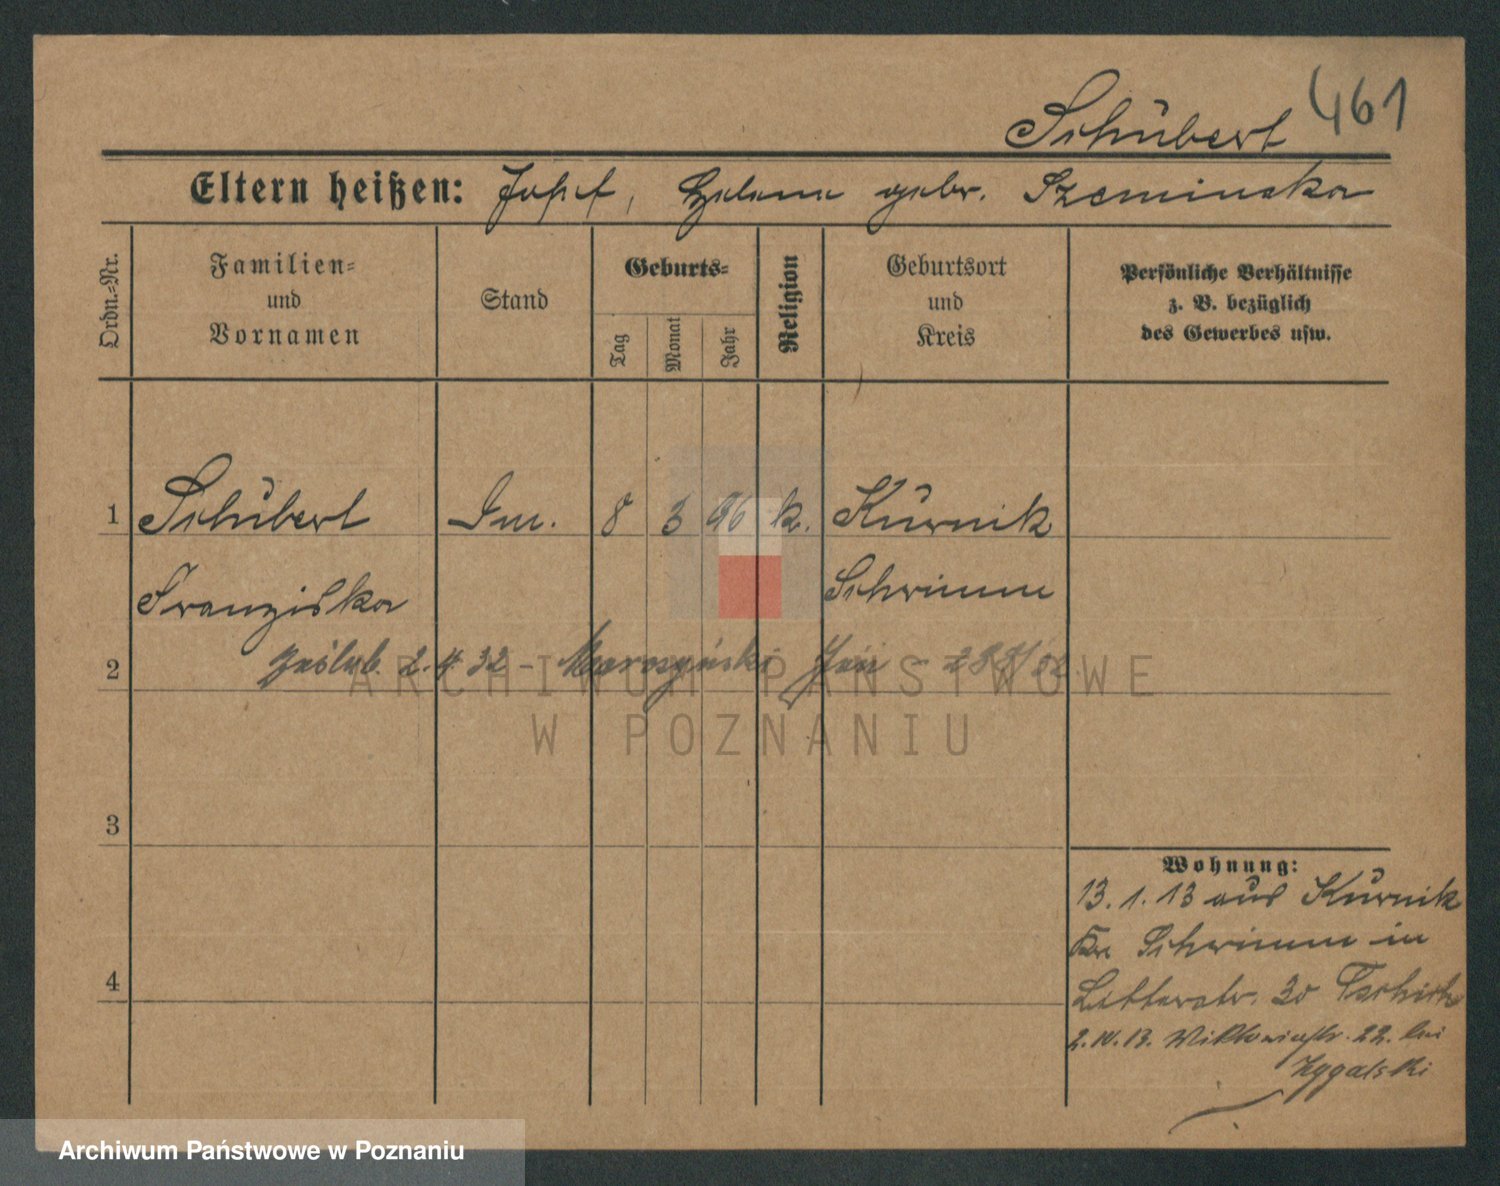 Schubert 461
Eltern heißen: Josef, Helena gebr. Szeminska
Ordn.-Nr.
Familien-
und
Vornamen
Stand
Geburts-
Tag
Monat
Jahr
Religion
Geburtsort
und
Kreis
Persönliche Verhältnisse
z. B. bezüglich
des Gewerbes usw.
1 Schubert 8 3 96 k. Kurnik
Franziska Schrimm
2 zaślub. 2.4.32 - Jan
ARCHIWUM PAŃSTWOWE
W POZNANIU
3
Wohnung:
13.1.13 aus Kurnik
Kr. Schrimm in
4 30
2.IV.13. Viktoriastr. 22. bei
Zygalski
Archiwum Państwowe w Poznaniu